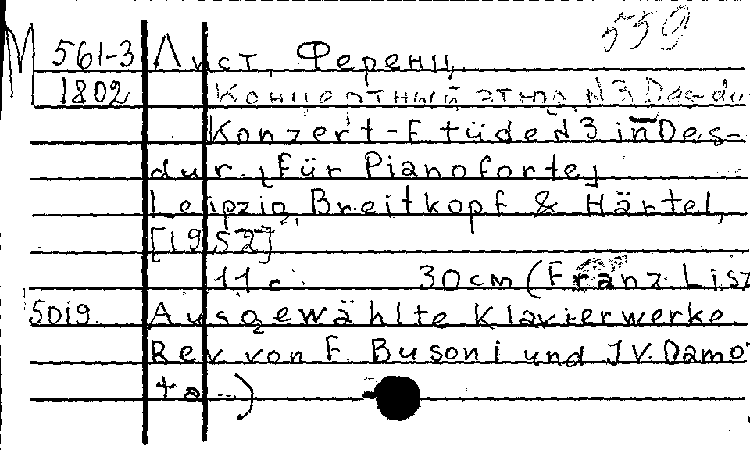 559
М 561-3 Лист, Ференц.
1802 Концертный этюд N3 Des-du
Konzert-Etüde N3 in Des-
dur. [für Pianoforte]
Leipzig, Breitkopf & Härtel,
[1952]
11 c. 30 cm (Franz Lisz
5019 Ausgewählte Klavierwerke
Rev von F. Busoni und J V. Damo
ta...)